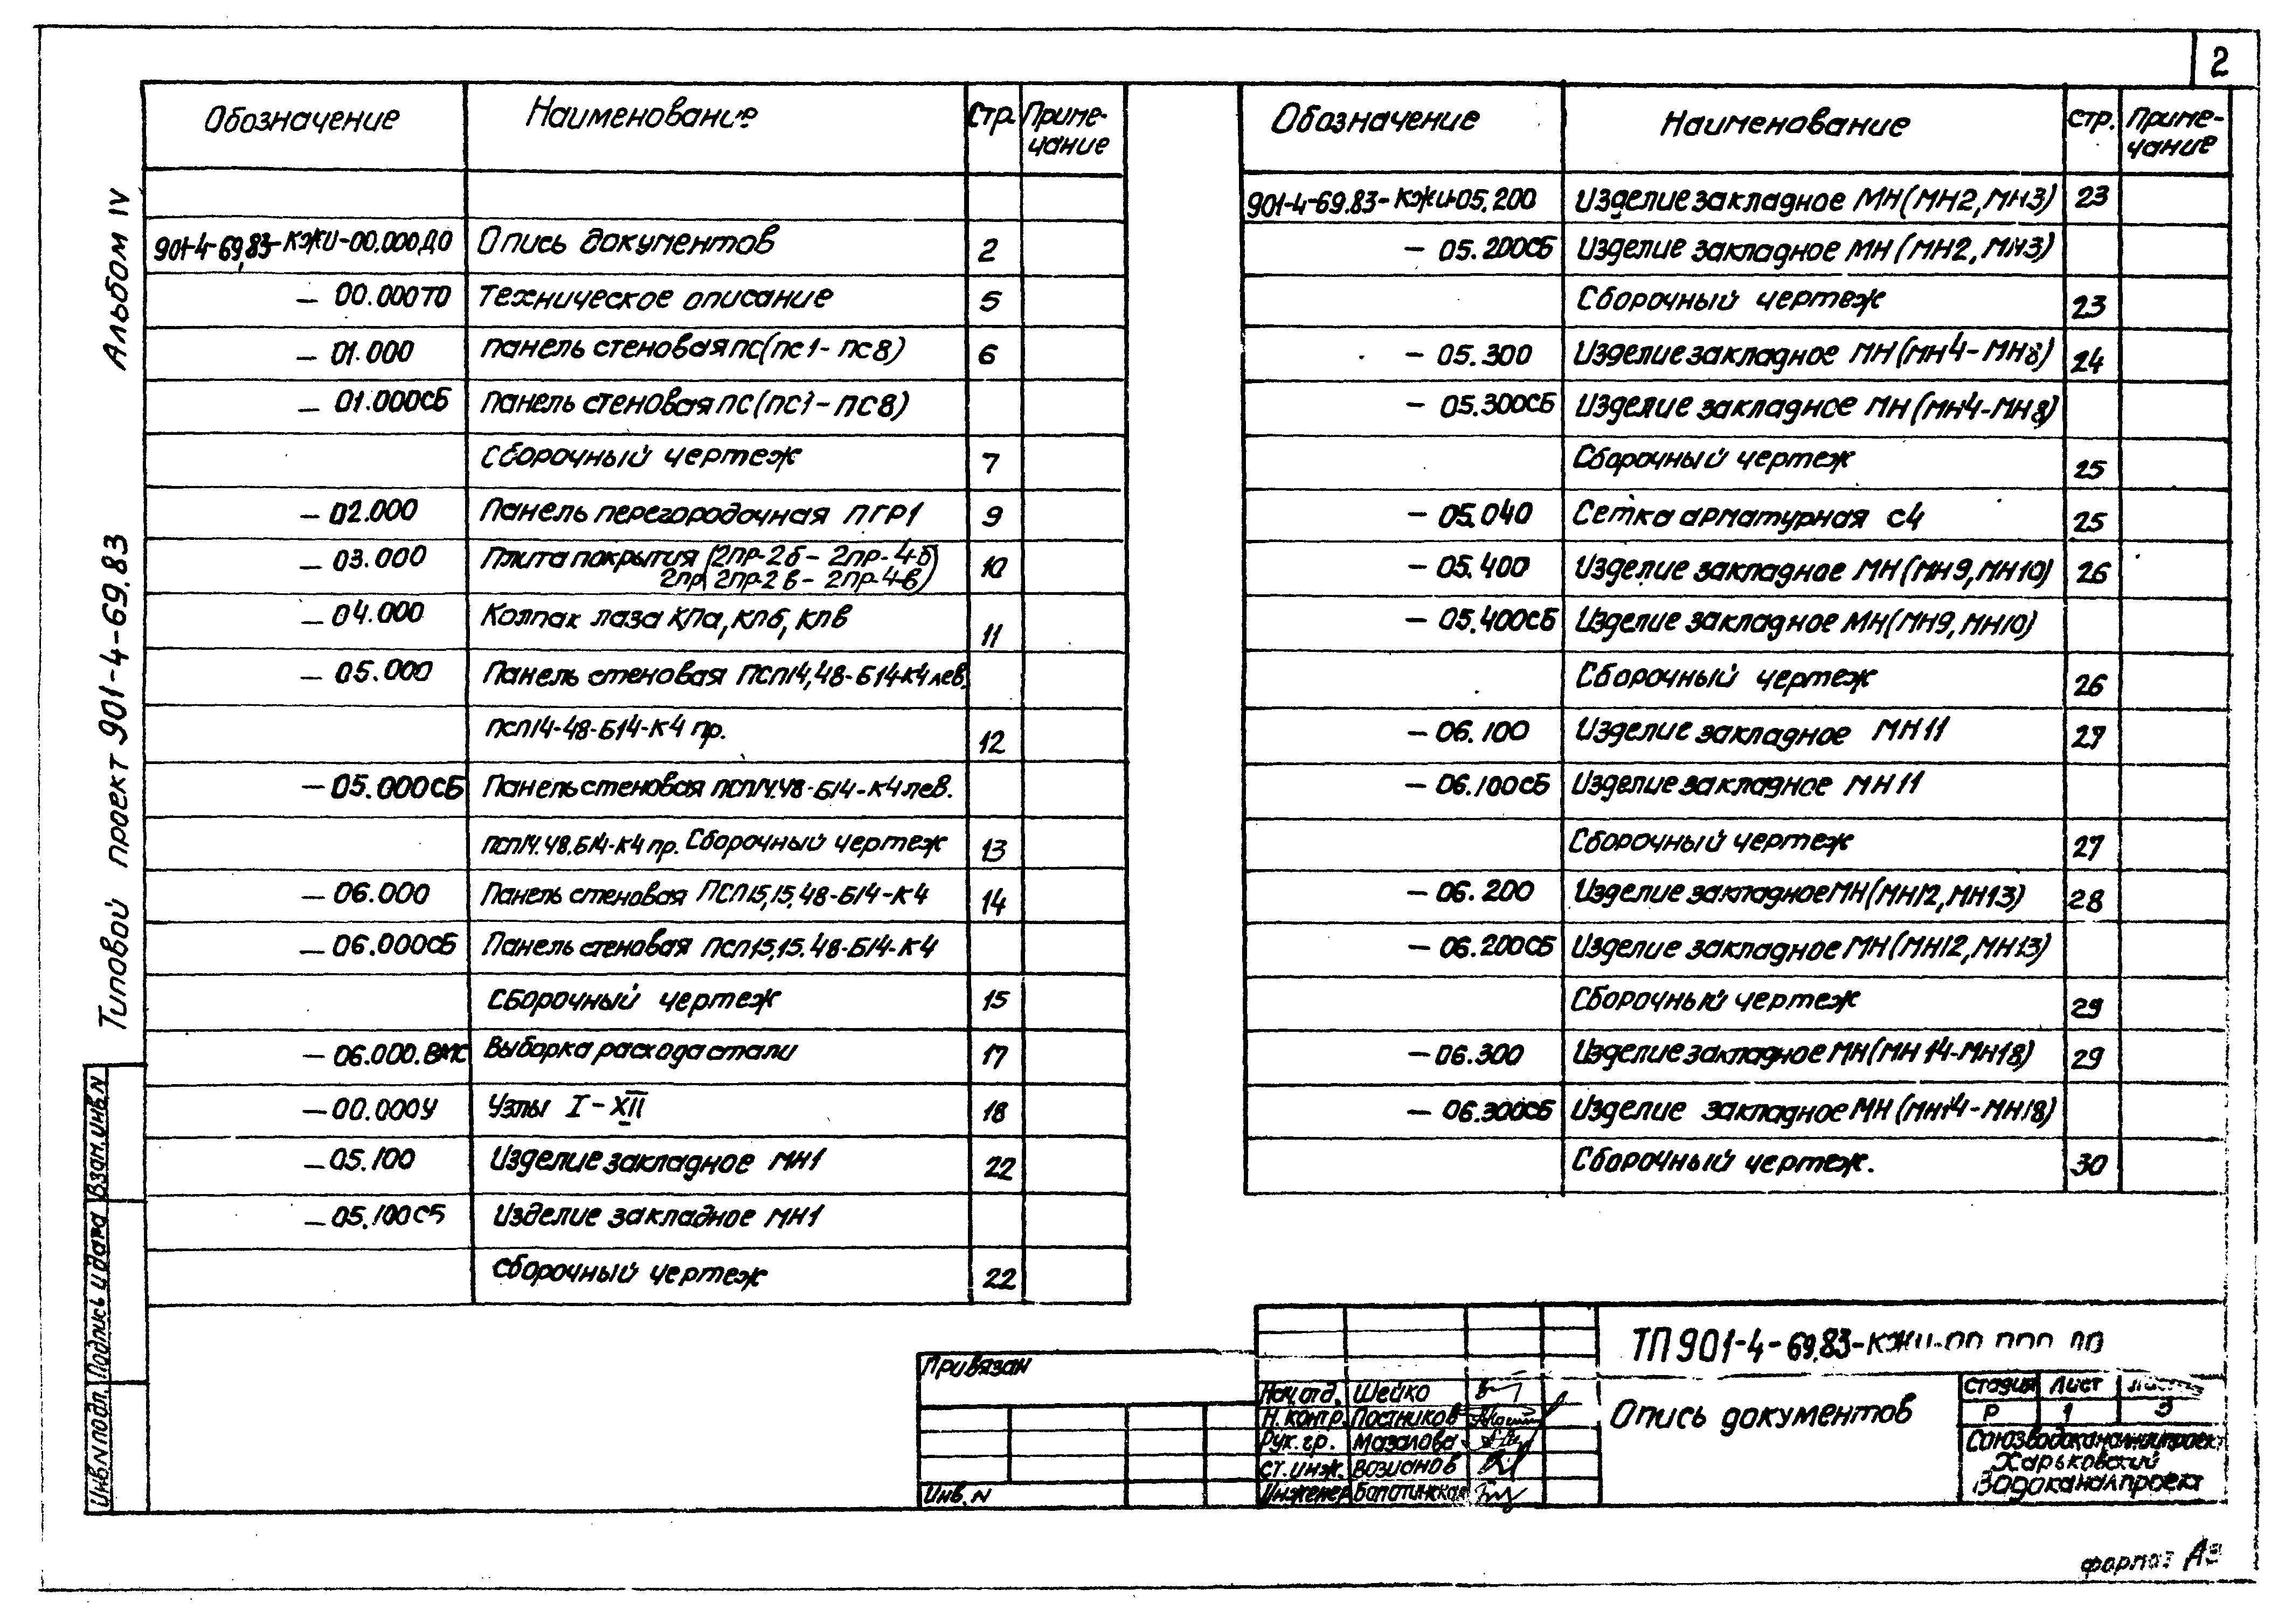 2
Альбом IV
Типовой проект 901-4-69.83
Взам.инв.N
Подпись и дата
Инв.N подл.
Обозначение Наименование Стр. Приме-
чание
901-4-69.83-КЖИ-00.000ДО Опись документов 2
- 00.000ТО Техническое описание 5
- 01.000 Панель стеновая ПС(ПС1-ПС8) 6
- 01.000СБ Панель стеновая ПС(ПС1-ПС8)
Сборочный чертеж 7
- 02.000 Панель перегородочная ПГР1 9
- 03.000 Плита покрытия (2ПР-2б - 2ПР-4-б
2ПР 2ПР-2в - 2ПР-4-в)
10
- 04.000 Колпак лаза КПа, КПб, КПв 11
- 05.000 Панель стеновая ПСП14,48-Б14-К4 лев.
ПСП14-48-Б14-К4 пр. 12
- 05.000СБ Панель стеновая ПСП14.48-Б14-К4 лев.
ПСП14.48.Б14-К4 пр. Сборочный чертеж 13
- 06.000 Панель стеновая ПСП15,15,48-Б14-К4 14
- 06.000СБ Панель стеновая ПСП15,15.48-Б14-К4
Сборочный чертеж 15
- 06.000.ВМС Выборка расхода стали 17
- 00.000У Узлы I-XII 18
- 05.100 Изделие закладное МН1 22
- 05.100СБ Изделие закладное МН1
Сборочный чертеж 22
Обозначение Наименование Стр. Приме-
чание
901-4-69.83-КЖИ-05.200 Изделие закладное МН(МН2,МН3) 23
- 05.200СБ Изделие закладное МН(МН2,МН3)
Сборочный чертеж 23
- 05.300 Изделие закладное МН(МН4-МН8) 24
- 05.300СБ Изделие закладное МН(МН4-МН8)
Сборочный чертеж 25
- 05.040 Сетка арматурная С4 25
- 05.400 Изделие закладное МН(МН9,МН10) 26
- 05.400СБ Изделие закладное МН(МН9,МН10)
Сборочный чертеж 26
- 06.100 Изделие закладное МН11 27
- 06.100СБ Изделие закладное МН11
Сборочный чертеж 27
- 06.200 Изделие закладное МН(МН12,МН13) 28
- 06.200СБ Изделие закладное МН(МН12,МН13)
Сборочный чертеж 29
- 06.300 Изделие закладное МН(МН14-МН18) 29
- 06.300СБ Изделие закладное МН(МН14-МН18)
Сборочный чертеж. 30
Привязан
Инв.N
ТП 901-4-69.83-КЖИ
Нач.отд. Шейко
Н.контр. Постников
Рук.гр. Мазалова
Ст.инж. Возианов
Инженер
Опись документов
Стадия Лист
Р 1 3
Союзводоканалниипроект
Харьковский
Водоканалпроект
формат А3